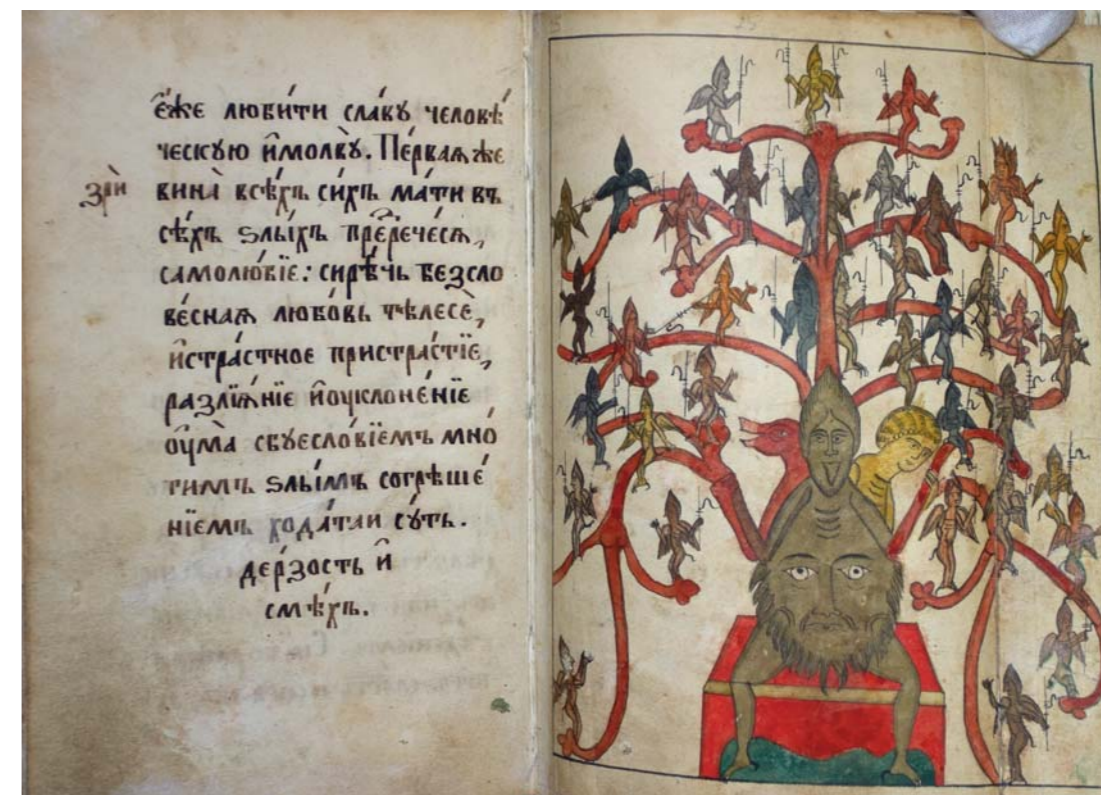 е҆́же люби́ти сла́вꙋ человѣ́
ческꙋю и҆молвꙋ̀. Пе́рваѧ же
зрѝ
вина̀ всѣ́хъ си́хъ ма́ти въ
сѣ́хъ ѕлы́хъ пр̾е́рече́сѧ,
самолю́бїе: сирѣ́чь безсло
ве́снаѧ любо́вь тѣлесѐ,
и҆стра́стное пристра́стїе,
разлїѧ́нїе и҆оуклоне́нїе
оу҆ма̀ сбꙋесло́вїемъ мно
гимъ ѕлы́мъ согрѣше́
нїемъ хода́таи сꙋ́ть.
де́рзость и҆
смѣ́хъ.